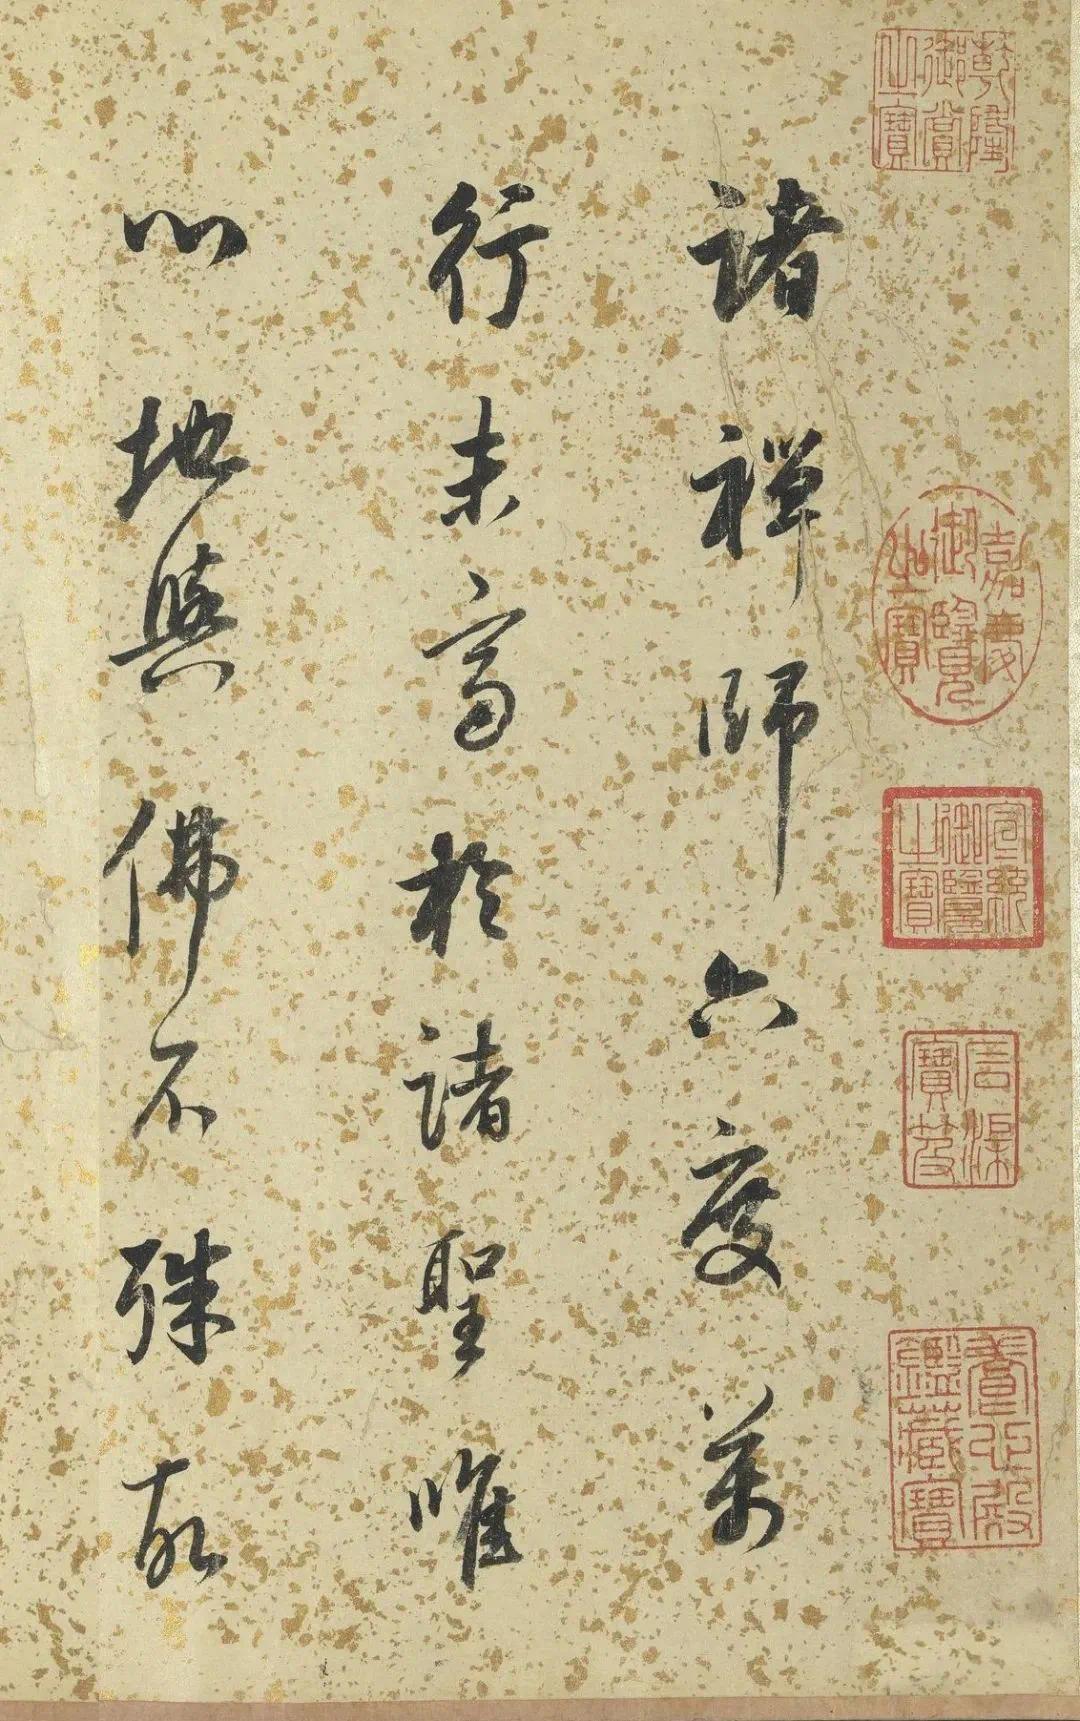 乾隆御賞之寶
嘉慶御覽之寶
宣統御覽之寶
石渠寶笈
養心殿鑑藏寶
諸禪師六度萬
行未高於諸聖唯
心地與佛不殊故